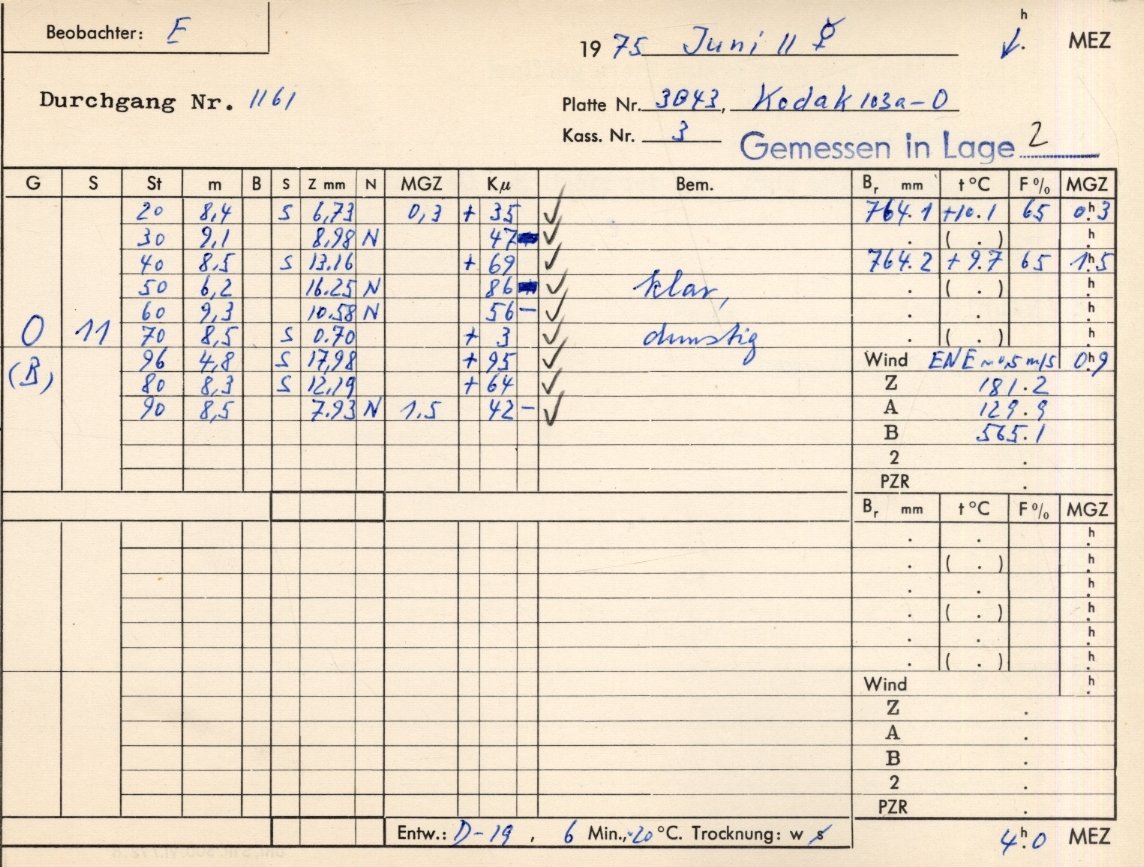 Beobachter: E
1975 Juni 11 ☿ h MEZ
Durchgang Nr. 1161
Platte Nr. 3043, Kodak 103a-O
Kass. Nr. 3 Gemessen in Lage 2
G S St m B S Z mm N MGZ Kμ Bem. Br mm t °C F % MGZ
20 8,4 S 6,73 0,3 + 35 ✓ 764.1 +10.1 65 0h.3
30 9,1 8,98 N 47 ✓ . ( . ) h.
40 8,5 S 13.16 + 69 ✓ 764.2 + 9.7 65 1h.5
50 6,2 16.25 N 86 ✓ klar, . ( . ) h.
60 9,3 10.58 N 56 − ✓ . h.
O 11 70 8,5 S 0.70 + 3 ✓ dunstig . ( . ) h.
96 4,8 S 17,98 + 95 ✓ Wind ENE ~0,5 m/s 0h.9
(B) 80 8,3 S 12,19 + 64 ✓ Z 181.2
90 8,5 7.93 N 1.5 42 − ✓ A 129.9
B 565.1
2 .
PZR .
Br mm t °C F % MGZ
. h.
. ( . ) h.
. h.
. ( . ) h.
. h.
. ( . ) h.
Wind h.
Z .
A .
B .
2 .
PZR .
Entw.: D-19, 6 Min., 20 °C. Trocknung: w s 4h.0 MEZ